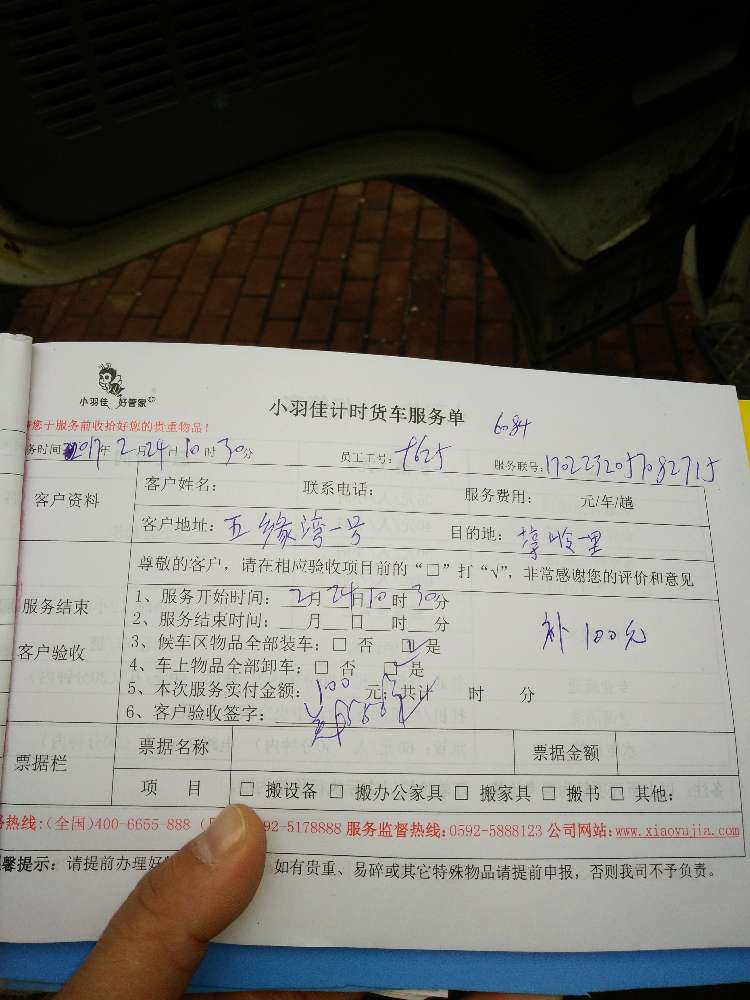 小羽佳 好管家
小羽佳计时货车服务单
6084
您于服务前收拾好您的贵重物品！
务时间 2017年2月24日10时30分 员工工号： 服务联号：1702232057082715
客户资料
客户姓名： 联系电话： 服务费用： 元/车/趟
客户地址：五缘湾一号 目的地：
服务结束
客户验收
尊敬的客户，请在相应验收项目前的“□”打“√”，非常感谢您的评价和意见
1、服务开始时间：2月24日10时30分
2、服务结束时间：__月__日__时__分
补100元
3、候车区物品全部装车：□ 否 ☑ 是
4、车上物品全部卸车：□ 否 ☑ 是
5、本次服务实付金额：100元；共计 时 分
6、客户验收签字：
票据栏
票据名称 票据金额
项 目 □ 搬设备 □ 搬办公家具 □ 搬家具 □ 搬书 □ 其他：
热线:(全国)400-6655-888 92-5178888 服务监督热线:0592-5888123 公司网站:www.xiaoyujia.com
馨提示：请提前办理好 如有贵重、易碎或其它特殊物品请提前申报，否则我司不予负责。